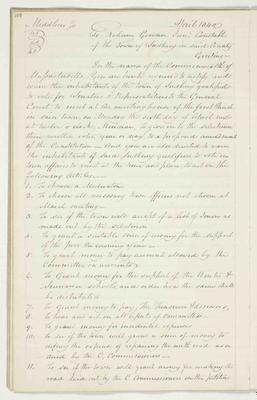 Middlesex ss April 1840
To Nahum Goodnow Constable
of the Town of Sudbury in said County
Greeting
In the name of the Commonwealth of
Massachusetts You are hereby required to notify and
warn the inhabitants of the town of Sudbury qualified
to vote for Senators & Representatives to the General
Court to meet at the meeting house of the first Parish
in said town, on Monday the sixth day of
at o'clock to give in to the selectmen
their written votes, yea or nay to a proposed amendment
of the Constitution And you are also directed to warn
the inhabitants of said Sudbury qualified to vote in
town affairs to meet at the time and place, to act on the
following Articles
1. To choose a Moderator
2. To choose all necessary town officers not chosen at
March meeting
3. To see if the town will accept of a list of Jurors as
made out by the selectmen
4. To grant a suitable sum of money for the support
of the poor the ensuing year
5. To grant money to pay accounts allowed by the
Committee on accounts
6. To Grant money for the support of the Winter &
Summer schools, and order how the same shall
be distributed
7. To Grant money to pay the Treasurer & Assessors
8. To hear and act on all reports of Committees
9. To grant money for incidental expenses
10. To see if the town will grant a sum of money to
defray the expense of repairing the road as
ordered by the C. Commissioners
11. To see if the town will grant money for making the
road laid out by the C. Commissioners on the petition